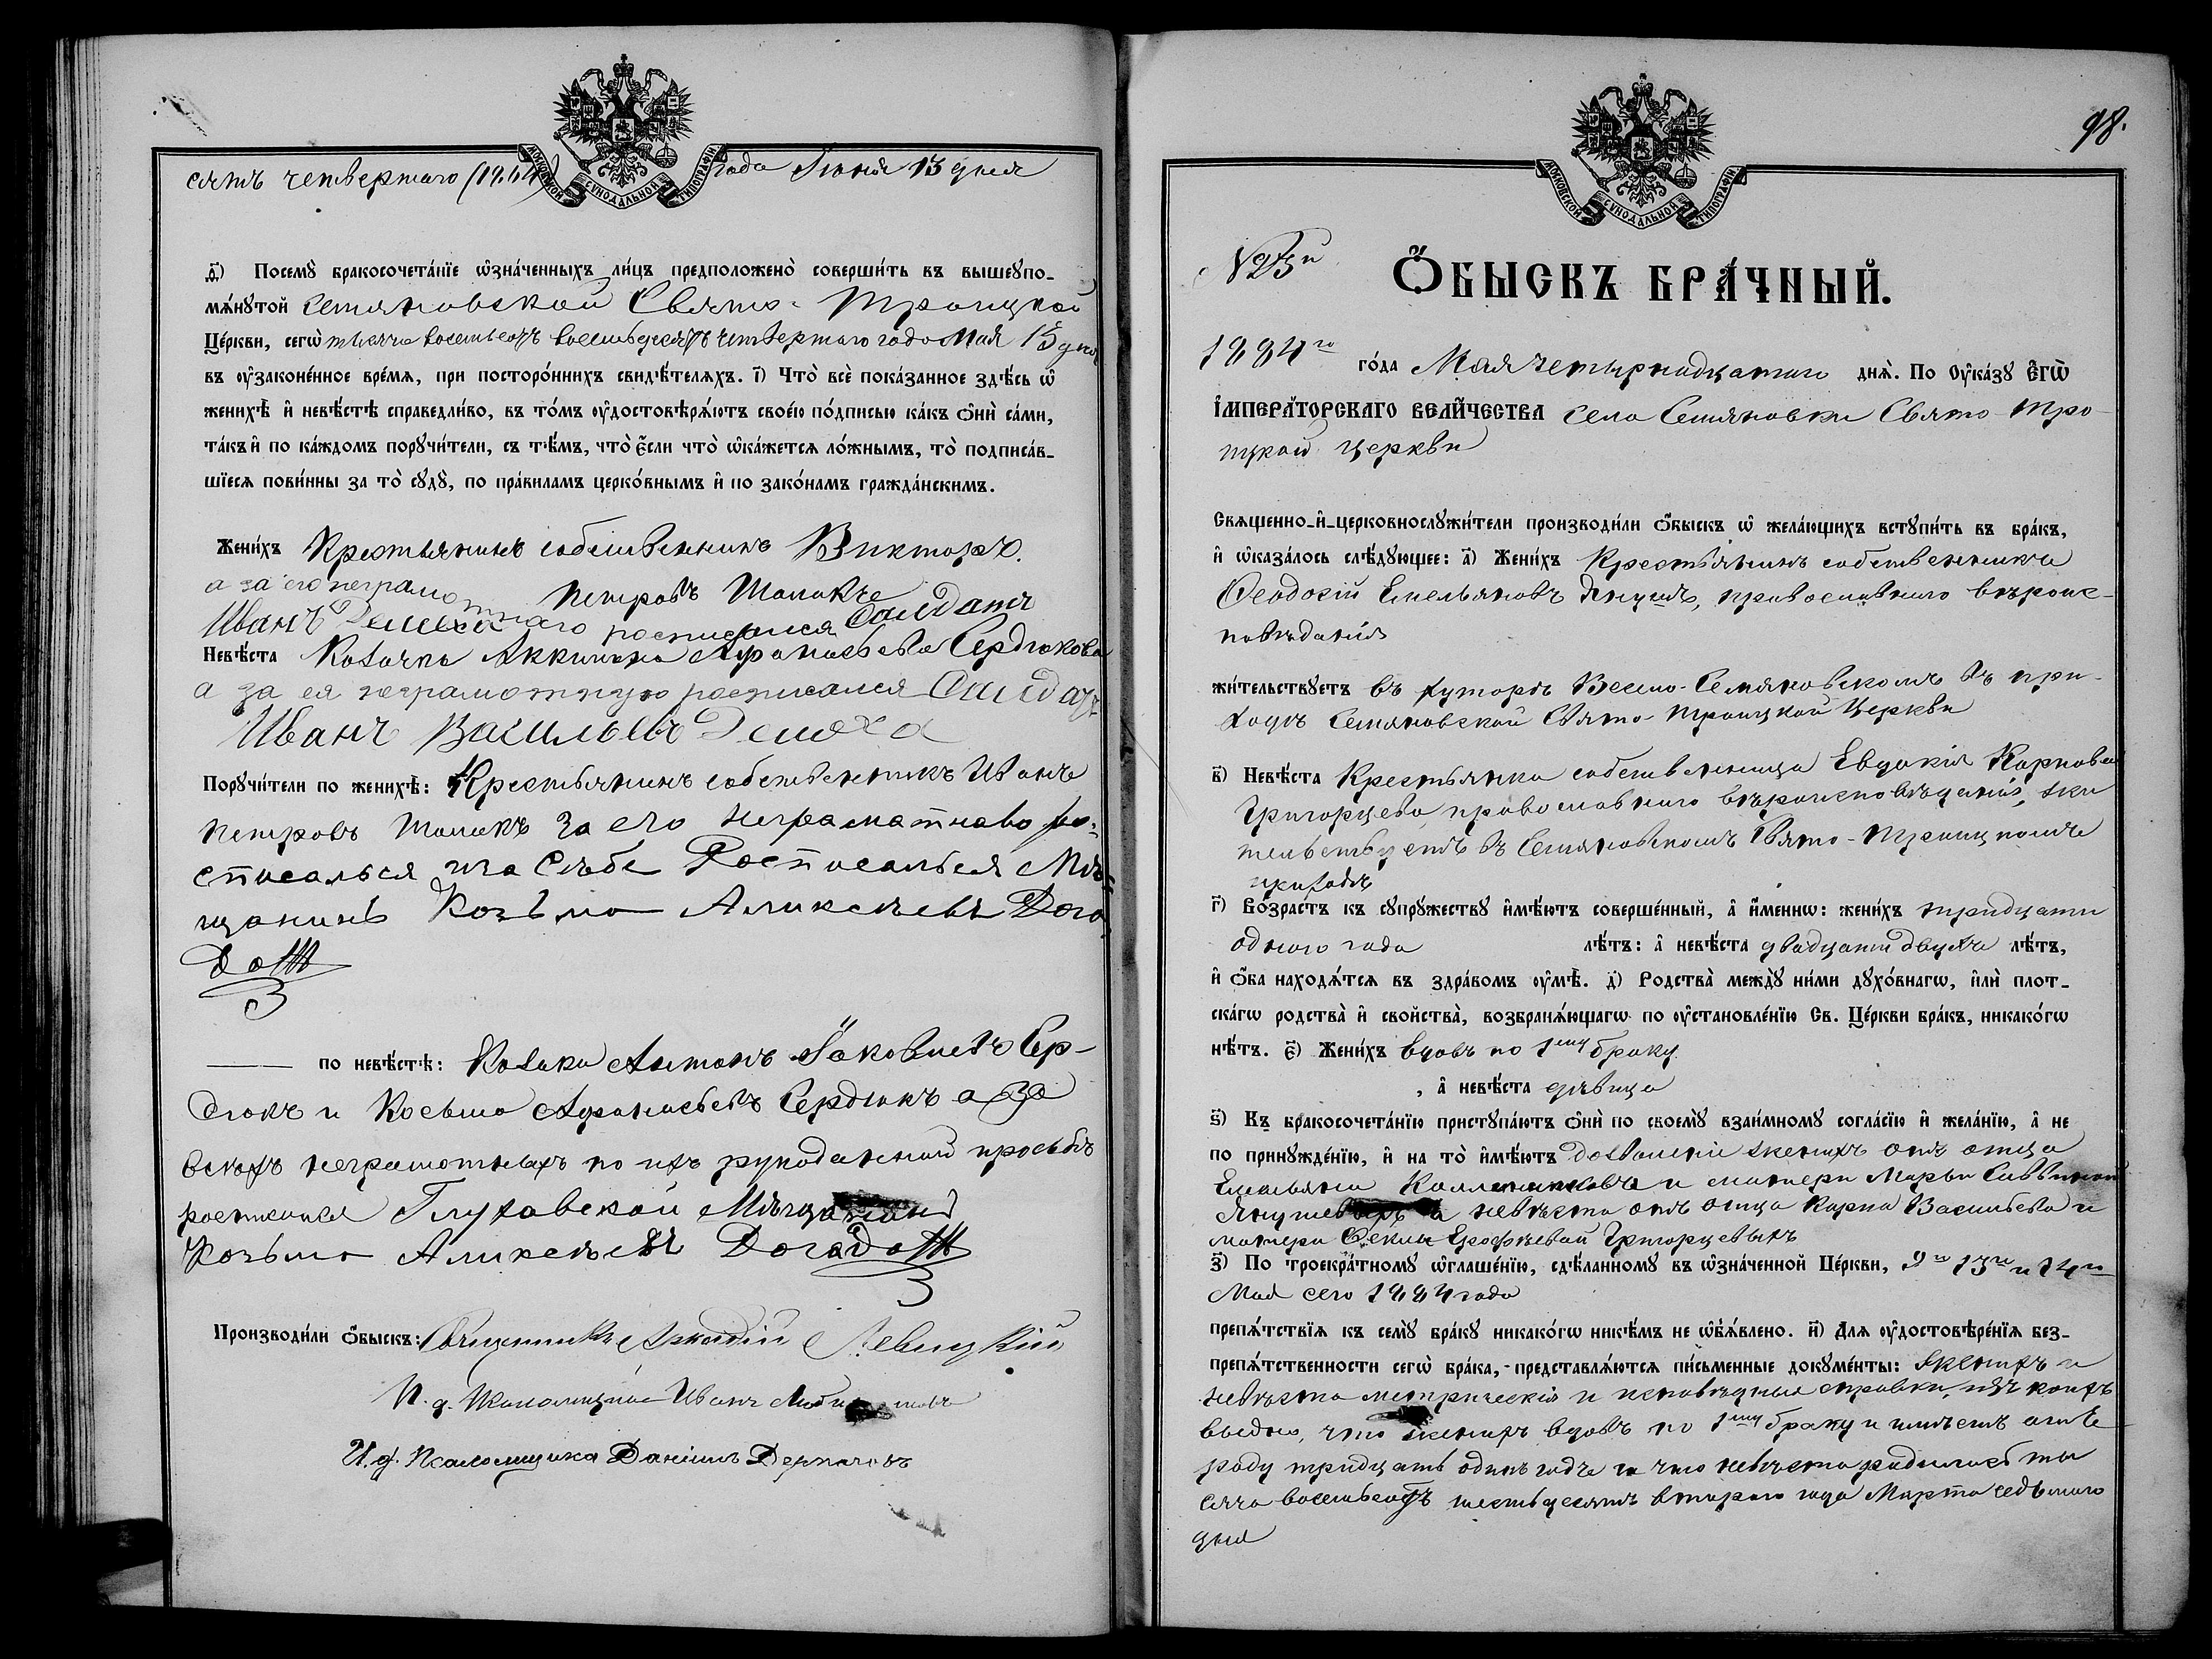 сятъ четвертаго (1864) года Іюня 13 дня
МОСКОВСКОЙ СѴНОДАЛЬНОЙ ТИПОГРАФІИ
ѳ҃) Посемꙋ̀ бракосочета́нїе ѡ҆зна́ченныхъ ли́цъ предположено̀ соверши́ть въ вышеꙋпо-
мѧ́нꙋтой Семяновской Свято-Троицкой
Це́ркви, сегѡ̀ тысяча восемьсотъ восемьдесятъ четвертаго года Мая 15 дня
въ оу҆законе́нное вре́мѧ, при посторо́ннихъ свидѣ́телѧхъ. і҃) Что̀ всѐ пока́занное здѣ́сь ѡ҆
женихѣ̀ и҆ невѣ́стѣ справедли́во, въ то́мъ оу҆достовѣрѧ́ютъ свое́ю по́дписью ка́къ ѻ҆нѝ са́ми,
та́къ и҆ по ка́ждомъ порꙋчи́тели, съ тѣ́мъ, что̀ є҆́сли что̀ ѡ҆ка́жетсѧ ло́жнымъ, то̀ подписа́в-
шїесѧ пови́нны за то̀ сꙋдꙋ̀, по пра́виламъ церко́внымъ и҆ по зако́намъ гражда́нскимъ.
Жени́хъ Крестьянинъ собственникъ Викторъ
Петровъ Шолокъ
а за его неграмотнаго росписался Салдатъ
Иванъ Демеха
Невѣ́ста Козачка Аккилина Афанасьева Сердюкова
а за ея неграмотную росписался Салдатъ
Иванъ Васильевъ Демеха
Порꙋчи́тели по женихѣ̀: Крестьянинъ собственникъ Иванъ
Петровъ Шолокъ за его неграматнаво ро-
списалься и за Себе Росписалься Мѣ-
щанинъ Козьма Аликсѣевъ Дога
Доѳ
по невѣ́стѣ: Козаки Антонъ Яковлевъ Сер-
дюкъ и Косьма Афанасьевъ Сердюкъ а за
всѣхъ неграмотныхъ по ихъ рукоданной просьбѣ
росписался Глуховской Мѣщанинъ
Козьма Аликсѣевъ Догадоѳ
Производи́ли ѻ҆́быскъ: Священникъ Аркадій Левицкій
И. д. Псаломщика Иванъ
И. д. Псаломщика Даніилъ Дерпаловъ
98.
МОСКОВСКОЙ СѴНОДАЛЬНОЙ ТИПОГРАФІИ
№ 25й
ѺБЫСКЪ БРА́ЧНЫЙ.
1884го го́да Мая четырнадцатаго днѧ̀. По Оу҆ка́зꙋ Є҆гѡ̀
І҆мпера́торскагѡ вели́чества села Семяновки Свято-Тро-
ицкой церкви
Свѧщенно-и҆-церковнослꙋжи́тели производи́ли ѻ҆́быскъ ѡ҆ жела́ющихъ вступи́ть въ бра́къ,
и҆ ѡ҆каза́лось слѣ́дꙋющее: а҃) Жени́хъ Крестьянинъ собственникъ
Ѳеодосій Емельяновъ Янушъ, православнаго вѣроис-
повѣданія
жи́тельствꙋетъ въ хуторѣ Весело-Семяновскомъ въ при-
ходѣ Семяновской Свято-Троицкой Церкви
в҃) Невѣ́ста Крестьянка собственница Евдокія Карпова
Григорцева, православнаго вѣроисповѣданія, жи
тельствуетъ въ Семяновскомъ Свято-Троицкомъ
приходѣ
г҃) Во́зрастъ къ сꙋпрꙋ́жествꙋ и҆мѣ́ютъ соверше́нный, а҆ и҆́меннѡ: жени́хъ тридцати
одного года лѣ́тъ: а҆ невѣ́ста двадцати двухъ лѣ́тъ,
и҆ ѻ҆́ба нахо́дѧтсѧ въ здра́вомъ оу҆мѣ̀. д҃) Родства̀ междꙋ̀ ни́ми дꙋхо́внагѡ, и҆лѝ плот-
ска́гѡ родства̀ и҆ свойства̀, возбранѧ́ющагѡ по оу҆становле́нїю Св. Це́ркви бра́къ, никако́гѡ
нѣ́тъ. є҃) Жени́хъ вдовъ по 1му браку
, а҆ невѣ́ста дѣвица
ѕ҃) Къ бракосочета́нїю приступа́ютъ ѻ҆нѝ по своемꙋ̀ взаи́мномꙋ согла́сїю и҆ жела́нїю, а҆ не
по принꙋжде́нїю, и҆ на то̀ и҆мѣ́ютъ дозволеніе женихъ отъ отца
Емельяна и матери Марьи Саввиной
а невѣста отъ отца Карпа Васильева и
матери Ѳеклы Ерофѣевой Григорцевыхъ
з҃) По троекра́тномꙋ ѡ҆глаше́нїю, сдѣ́ланномꙋ въ ѡ҆зна́ченной Це́ркви, 9го 13го и 14го
Мая сего 1884 года
препѧ́тствїѧ къ семꙋ̀ бра́кꙋ никако́гѡ никѣ́мъ не ѡ҆б̾ѧ́влено. и҃) Длѧ оу҆достовѣре́нїѧ без-
препѧ́тственности сегѡ̀ бра́ка, представлѧ́ютсѧ пи́сьменные докꙋме́нты: женихъ и
невѣста метрическія и исповѣдныя справки, изъ коихъ
видно, что женихъ вдовъ по 1му браку и имѣетъ отъ
роду тридцать одинъ годъ и что невѣста родилась ты
сяча восемьсотъ шестьдесятъ втораго года Марта седьмаго
дня